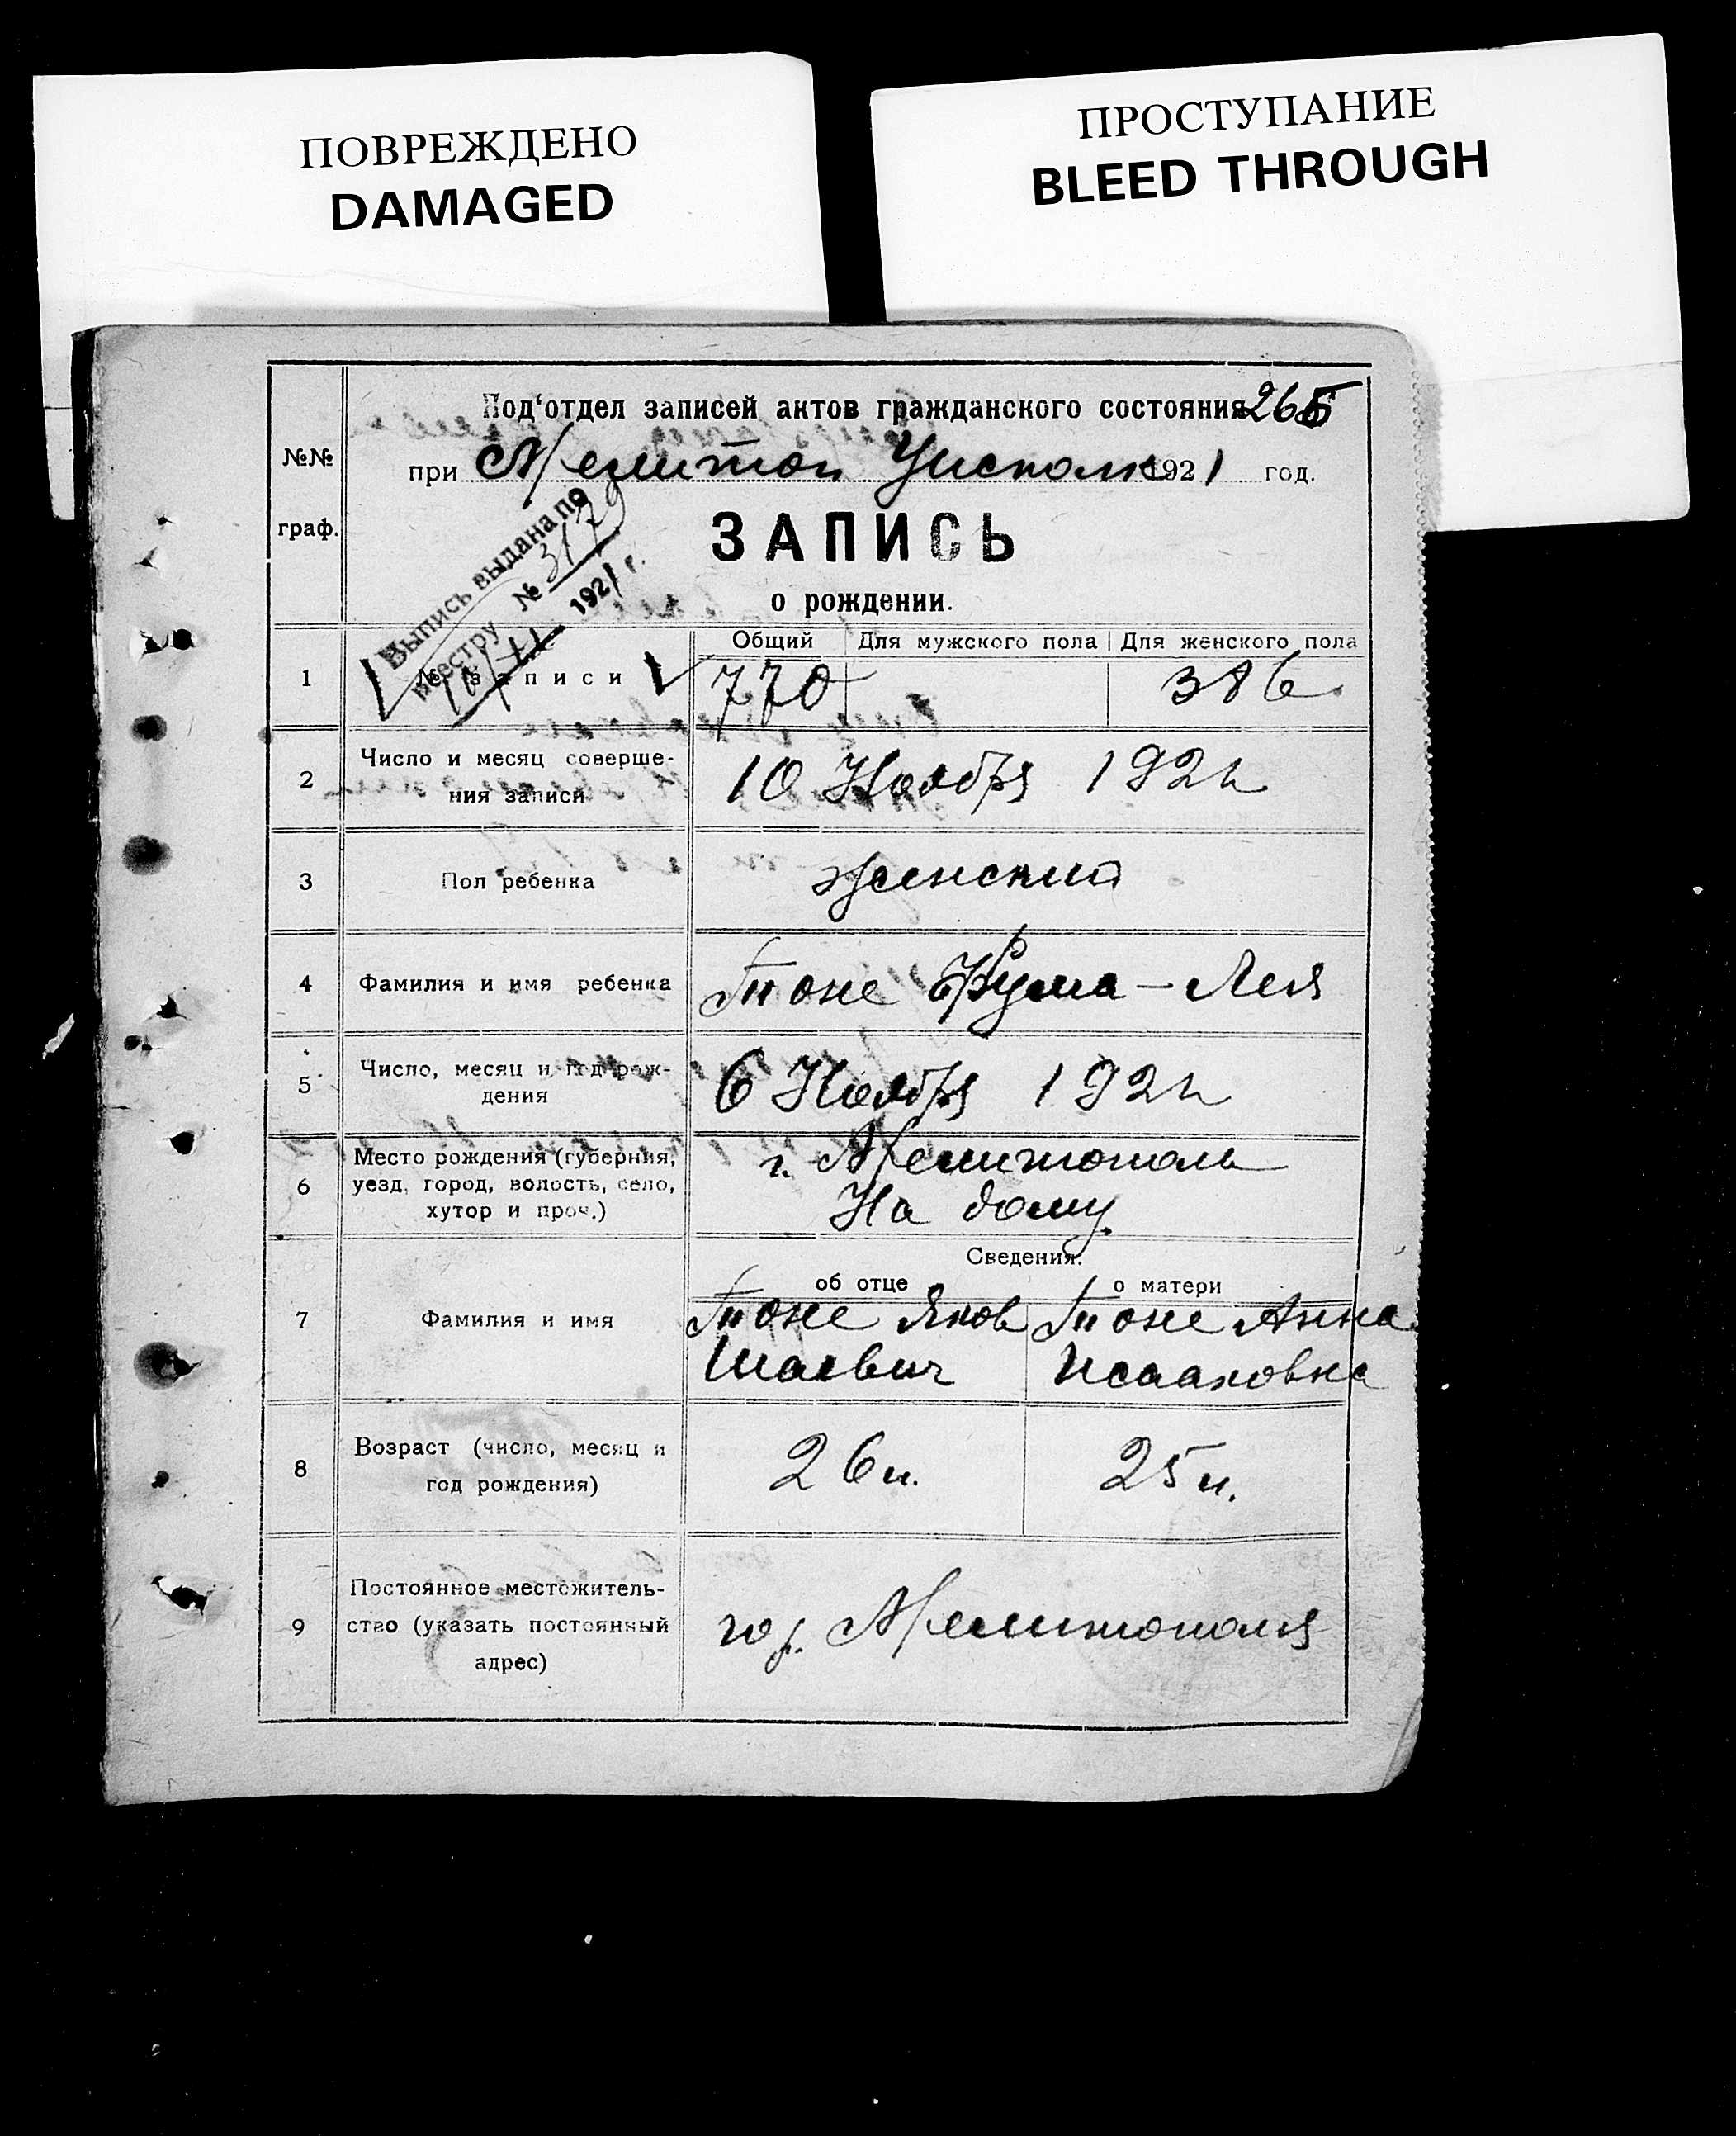 ПОВРЕЖДЕНО
DAMAGED
ПРОСТУПАНИЕ
BLEED THROUGH
Под'отдел записей актов гражданского состояния 265
№№
граф.
при Мелитоп Уисполк 1921 год.
Выпись выдана по
реестру № 3179
1921 г.
ЗАПИСЬ
о рождении.
Общий Для мужского пола Для женского пола
1 № записи 770 386
2 Число и месяц соверше-
ния записи
10 Ноября 192 г
3 Пол ребенка женский
4 Фамилия и имя ребенка Тоне Фрума-Лея
5 Число, месяц и год рож-
дения
6 Ноября 192 г
6 Место рождения (губерния,
уезд, город, волость, село,
хутор и проч.)
г. Мелитополь
На дому
Сведения:
об отце о матери
7 Фамилия и имя Тоне Яков Тоне Анна
Шаевич Исааковна
8 Возраст (число, месяц и
год рождения)
26 л. 25 л.
9 Постоянное местожитель-
ство (указать постоянный
адрес)
гор. Мелитополя